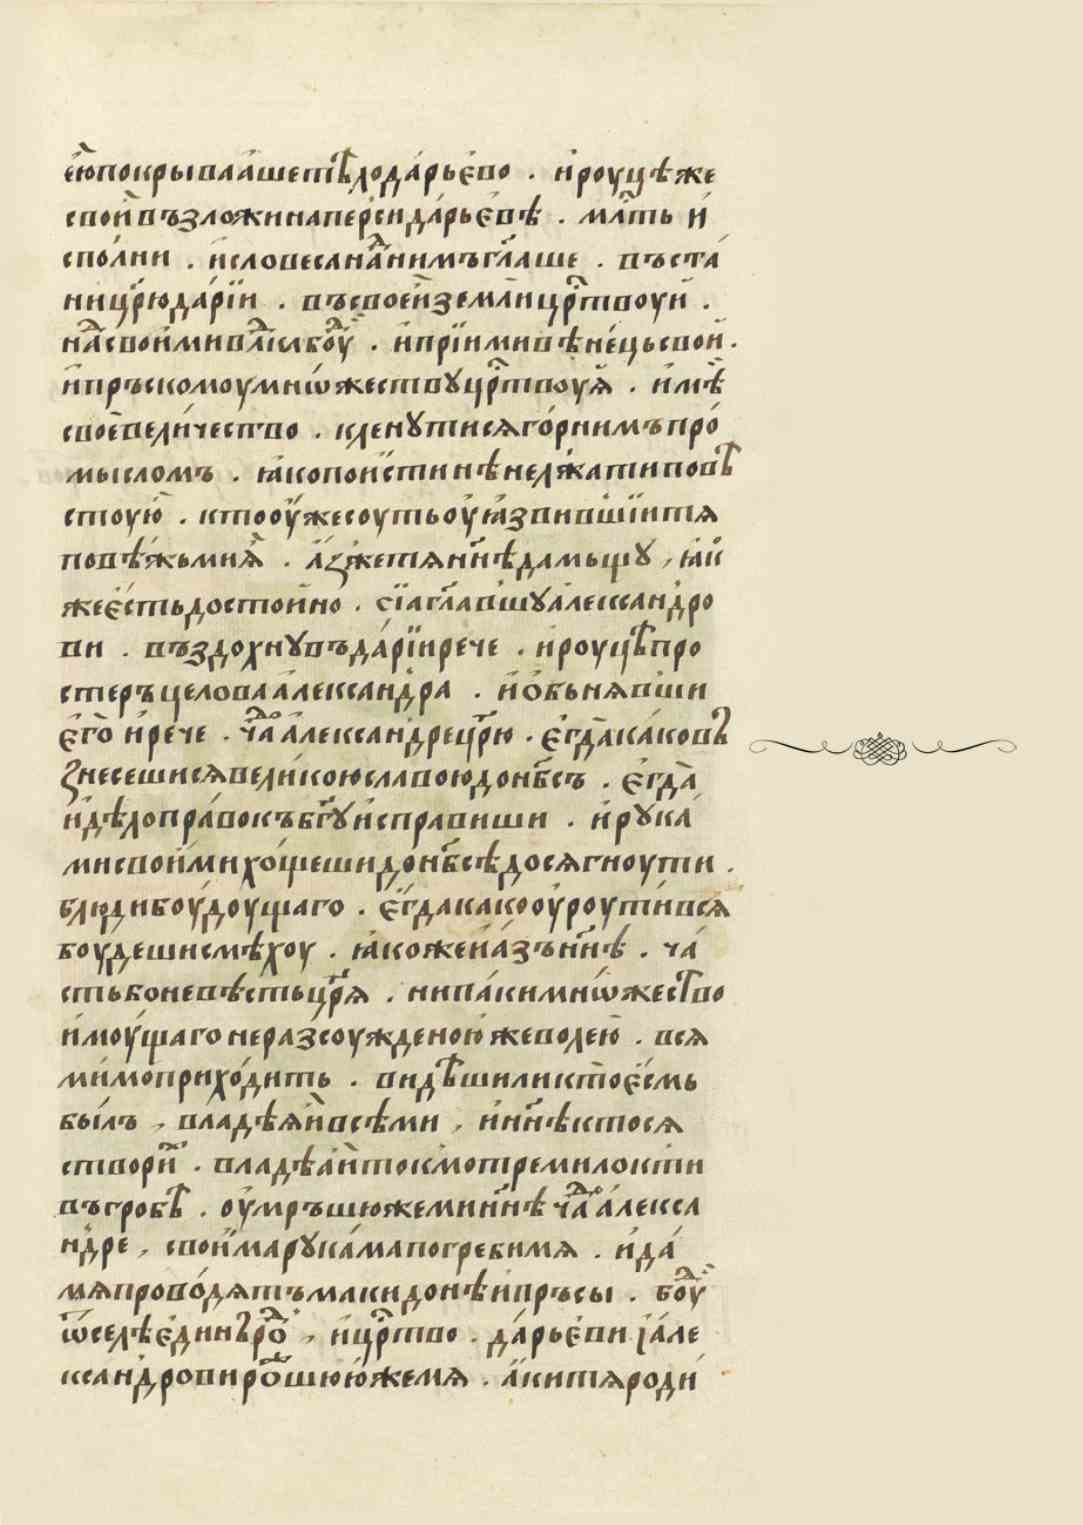 ею покрывааше тѣло дарьево . и роуцѣ же
свои възложи на перси дарьевѣ . млⷭ҇ть и
сполни . и словеса над̾ нимъ гл҃аше . въста
ни цр҃ю дарїи . въ своеи земли црⷭ҇твоуи .
над̾ своими влⷣка боуди . и прїими вѣнець свои .
и пръскомоу мнѡжеству црⷭ҇твоуя . имѣ
свое величество . кленутися горнимъ про
мысломъ . ꙗко поистиннѣ не лжа ти повѣ
стоую . кто оуже соуть оуꙗзвившїи тя
повѣжь ми я . азже тя нн҃ѣ дамьщу , ꙗк
же есть достойно . сїа гл҃авшу александро
ви . въздохнувъ дарїи рече . и роуцѣ про
стеръ целова александра . и обьнявши
его и рече . чадо александре цр҃ю . егда како въ
знесешися великою славою до нб҃съ . егда
и дѣло право къ бг҃у исправиши . и рука
ми своими хощеши до нб҃сѣ досягноути .
блюди боудоущаго . егда како оуроутився
боудеши смѣхоу . ꙗкоже и азъ нн҃ѣ . ча
сть бо не вѣсть цр҃я . ни пакы мнѡжество
имоущаго неразсоужденою же волею . вся
мимо приходить . видѣши ли кто есмь
былъ , владѣяй всѣми , и нн҃ѣ кто ся
створих . владѣаи токмо треми локти
въ гробѣ . оумръшю же ми нн҃ѣ чадо алекса
ндре , своима рукама погреби мя . и да
мя проводятъ макидонѣ и пръсы . боуди
ѿселѣ единъ родъ , и црⷭ҇тво . дарьеви і але
ксандрови рождьшюю же мя . аки тя роди